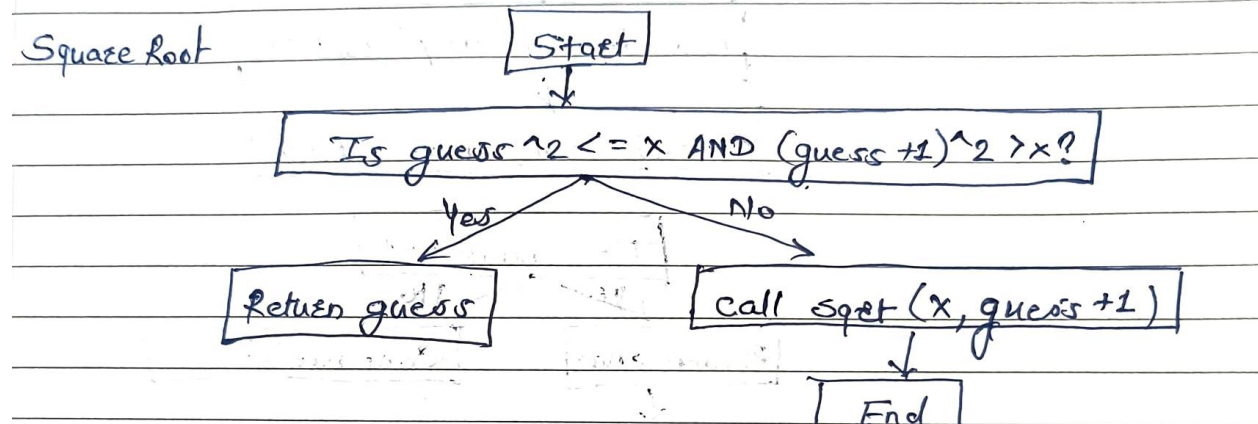 Square Root
Start
Is guess ^2 <= x AND (guess +1)^2 >x?
Yes
No
Return guess
call sqrt (x, guess +1)
End